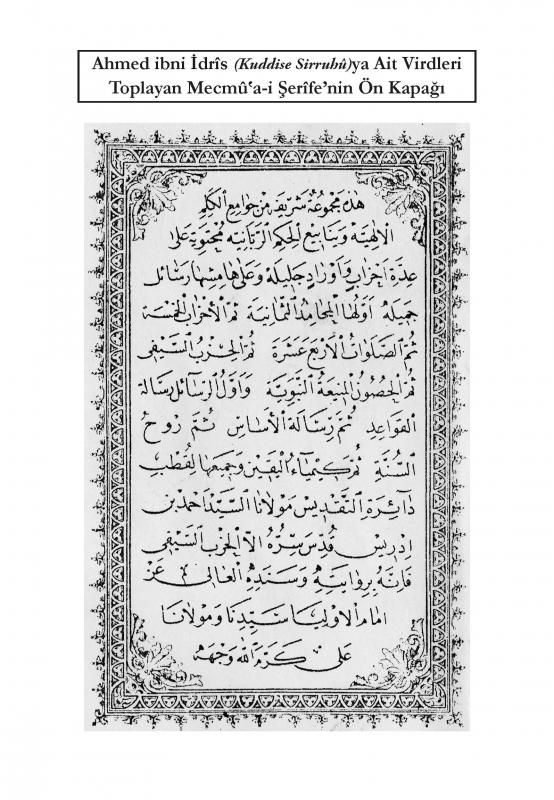 Ahmed ibni İdrîs (Kuddise Sirruhû)ya Ait Virdleri
Toplayan Mecmû‘a-i Şerîfe’nin Ön Kapağı
هذه مجموعة شريفة من جوامع الكلم
الالهية وينابيع الحكم الربانية محتوية على
عدة احزاب واوراد جليلة وعلى هامشها رسائل
جميلة اولها المحامد الثمانية ثم الأحزاب الخمسة
ثم الصلوات الأربع عشرة ثم الحزب السيفي
ثم الحصون المنيعة النبوية واول الرسائل رسالة
القواعد ثم رسالة الأساس ثم روح
السنة ثم كيمياء اليقين وجميعها لقطب
دائرة التقديس مولانا السيد احمد بن
ادريس قدس سره الا الحزب السيفي
فانه بروايته وسنده العالى عن
امام الاوليا سيدنا ومولانا
على كرم الله وجهه